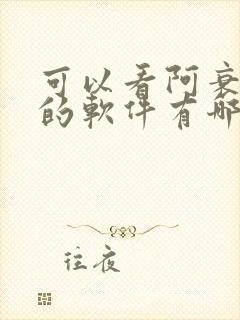 可以看阿衰
的軟件有哪
往夜